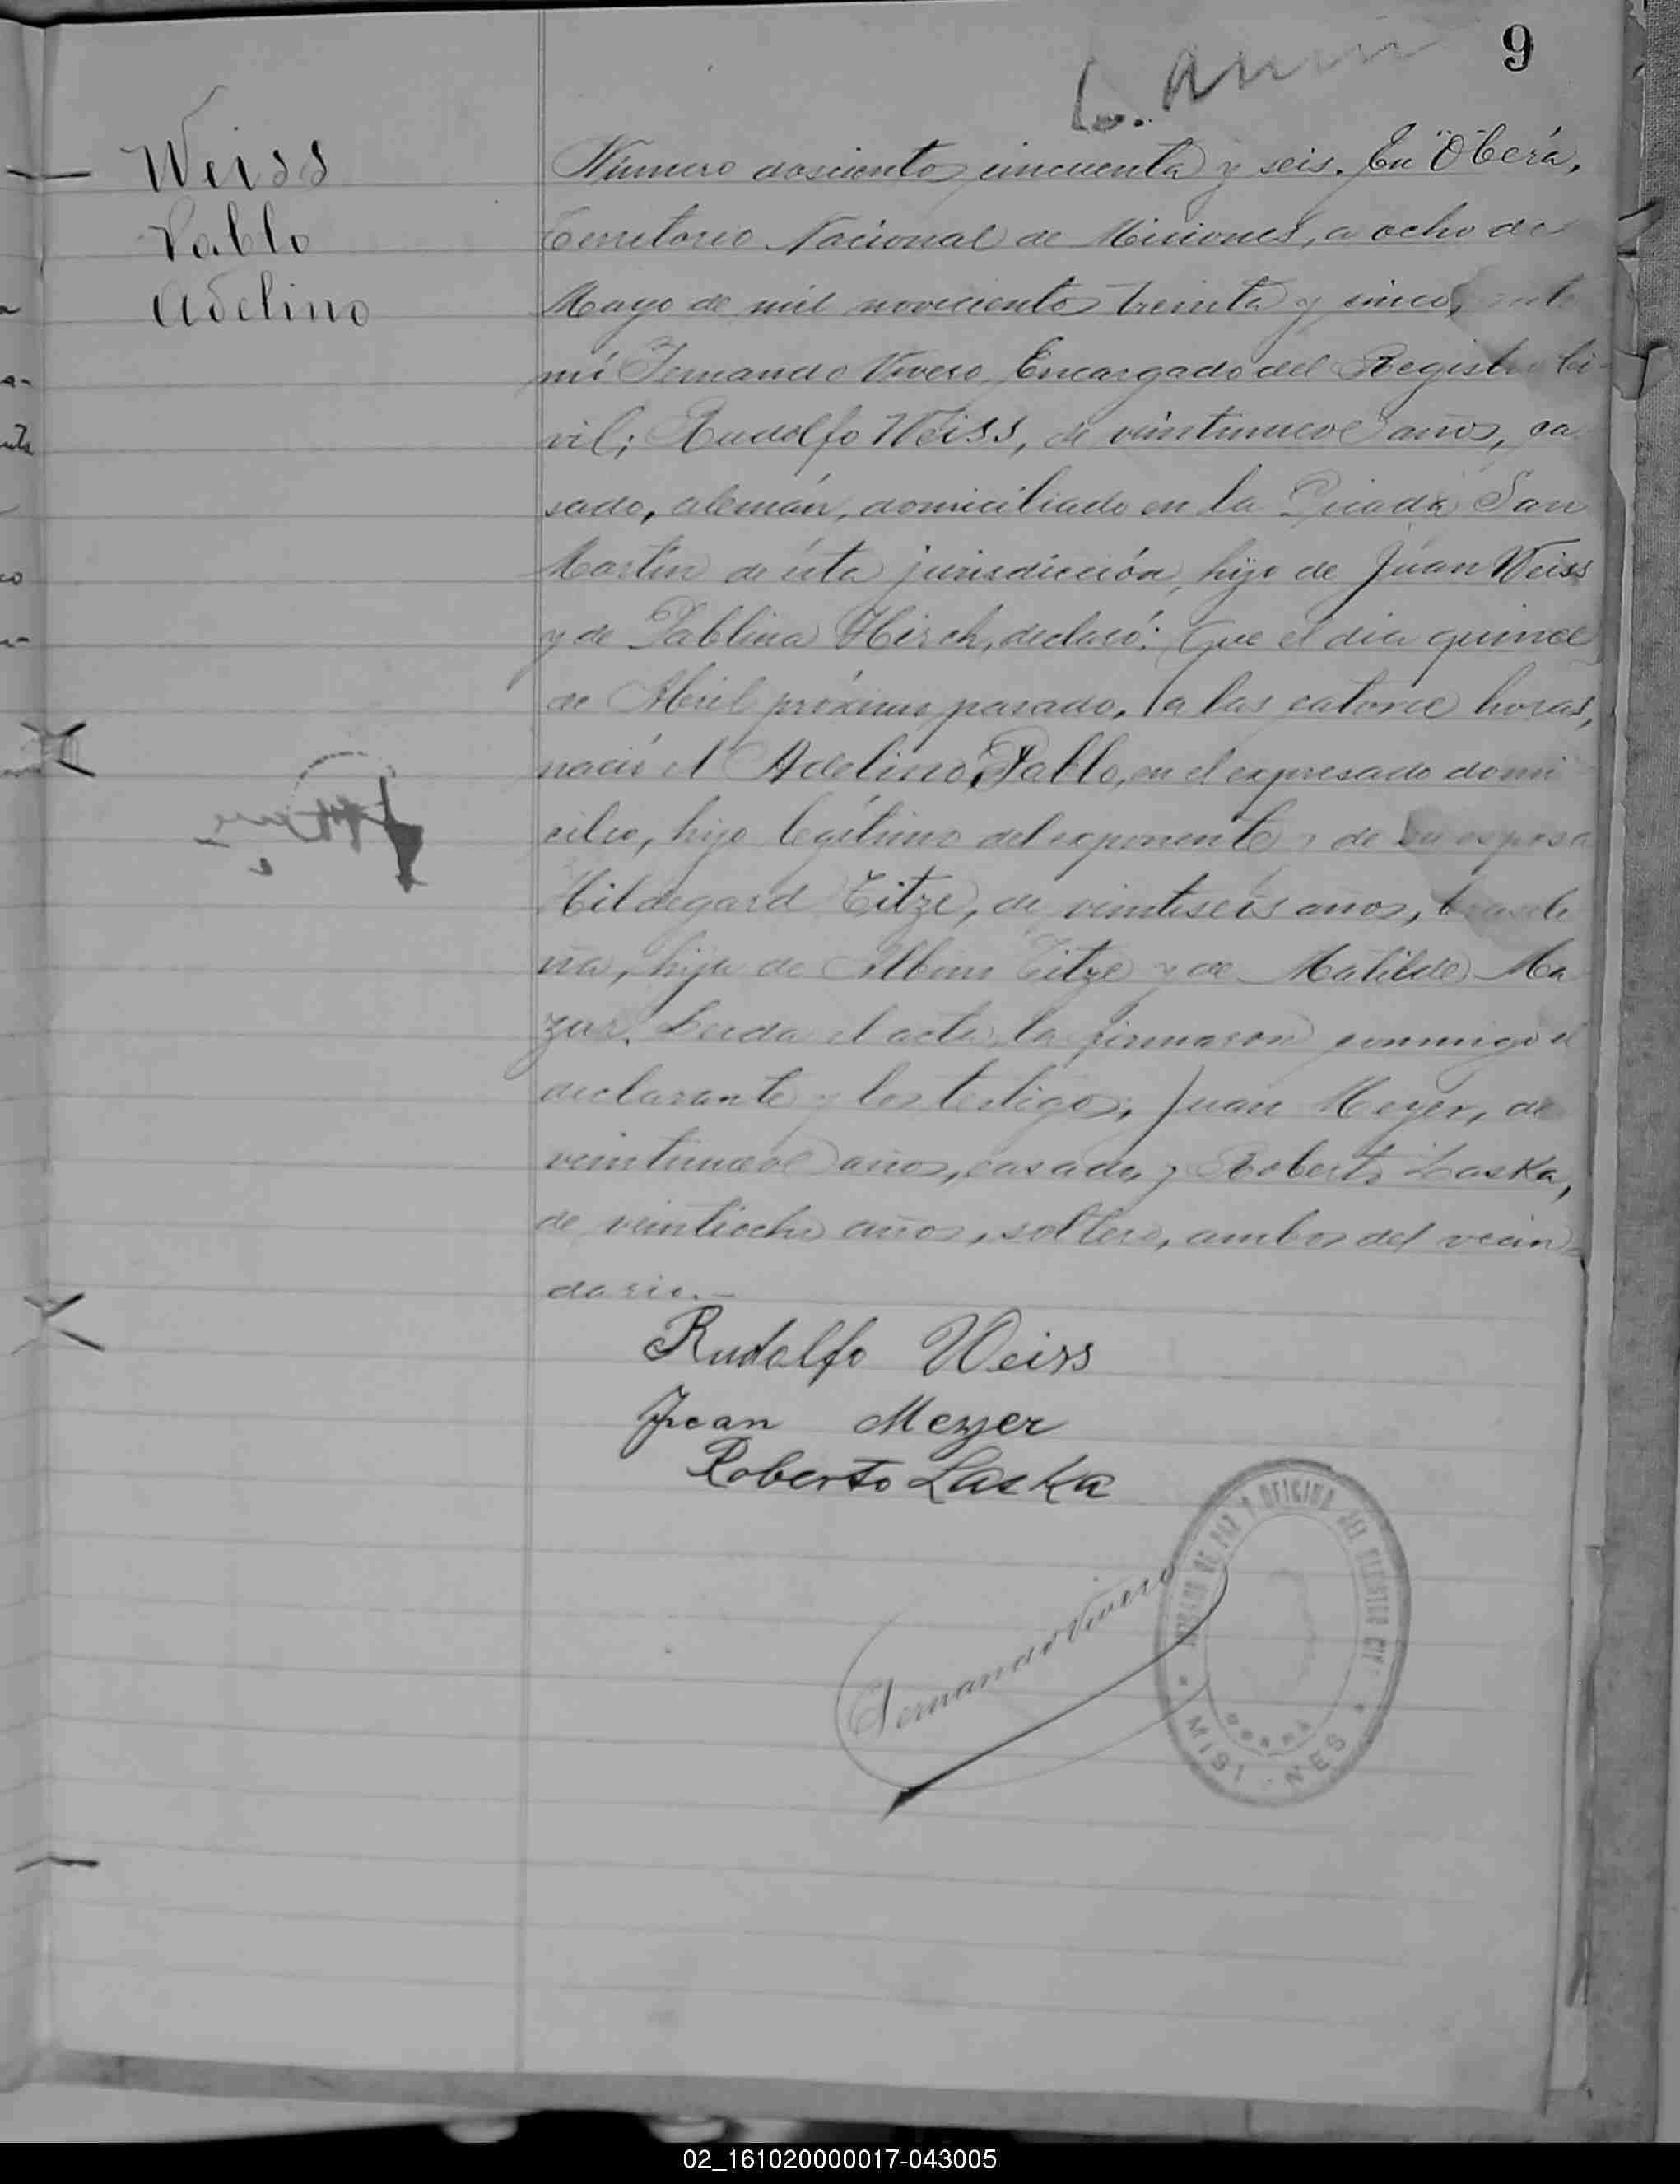 9
Weiss
Pablo
Adelino
Número doscientos cincuenta y seis. En "Oberá,
Territorio Nacional de Misiones, a ocho de
Mayo de mil novecientos treinta y cinco, ante
mí Fernando Vivero Encargado del Registro Ci-
vil; Rudolfo Weiss, de veintinueve años, ca
sado, alemán, domiciliado en la Picada San
Martín de ésta jurisdicción, hijo de Juan Weiss
y de Pablina Hirch, declaró: Que el día quince
de Abril próximo pasado, a las catorce horas,
nació el Adelino Pablo, en el expresado domi
cilio, hijo legítimo del exponente y de su esposa
Hildegard Titze, de veintiseis años, brasile
ña, hija de Albino Titze y de Matilde Ma
zur. Leida el acta, la firmaron conmigo el
declarante y los testigos; Juan Meyer, de
veintinueve años, casado, y Roberto Laska,
de veintiocho años, soltero, ambos del vecin
dario.—
Rudolfo Weiss
Juan Meyer
Roberto Laska
Fernando Vivero
JUZGADO DE PAZ Y OFICINA DEL REGISTRO CIVIL
OBERÁ
MISIONES
02_161020000017-043005